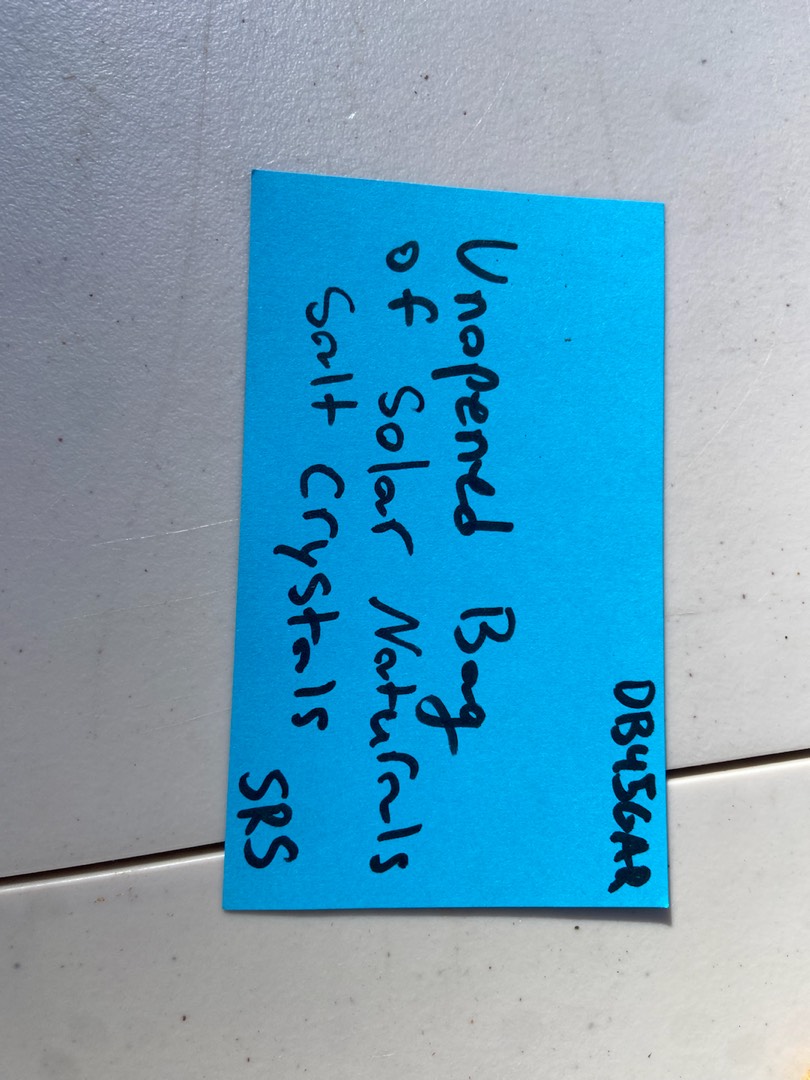 DB456AR
Unopened Bag
of Solar Naturals
Salt Crystals
SRS